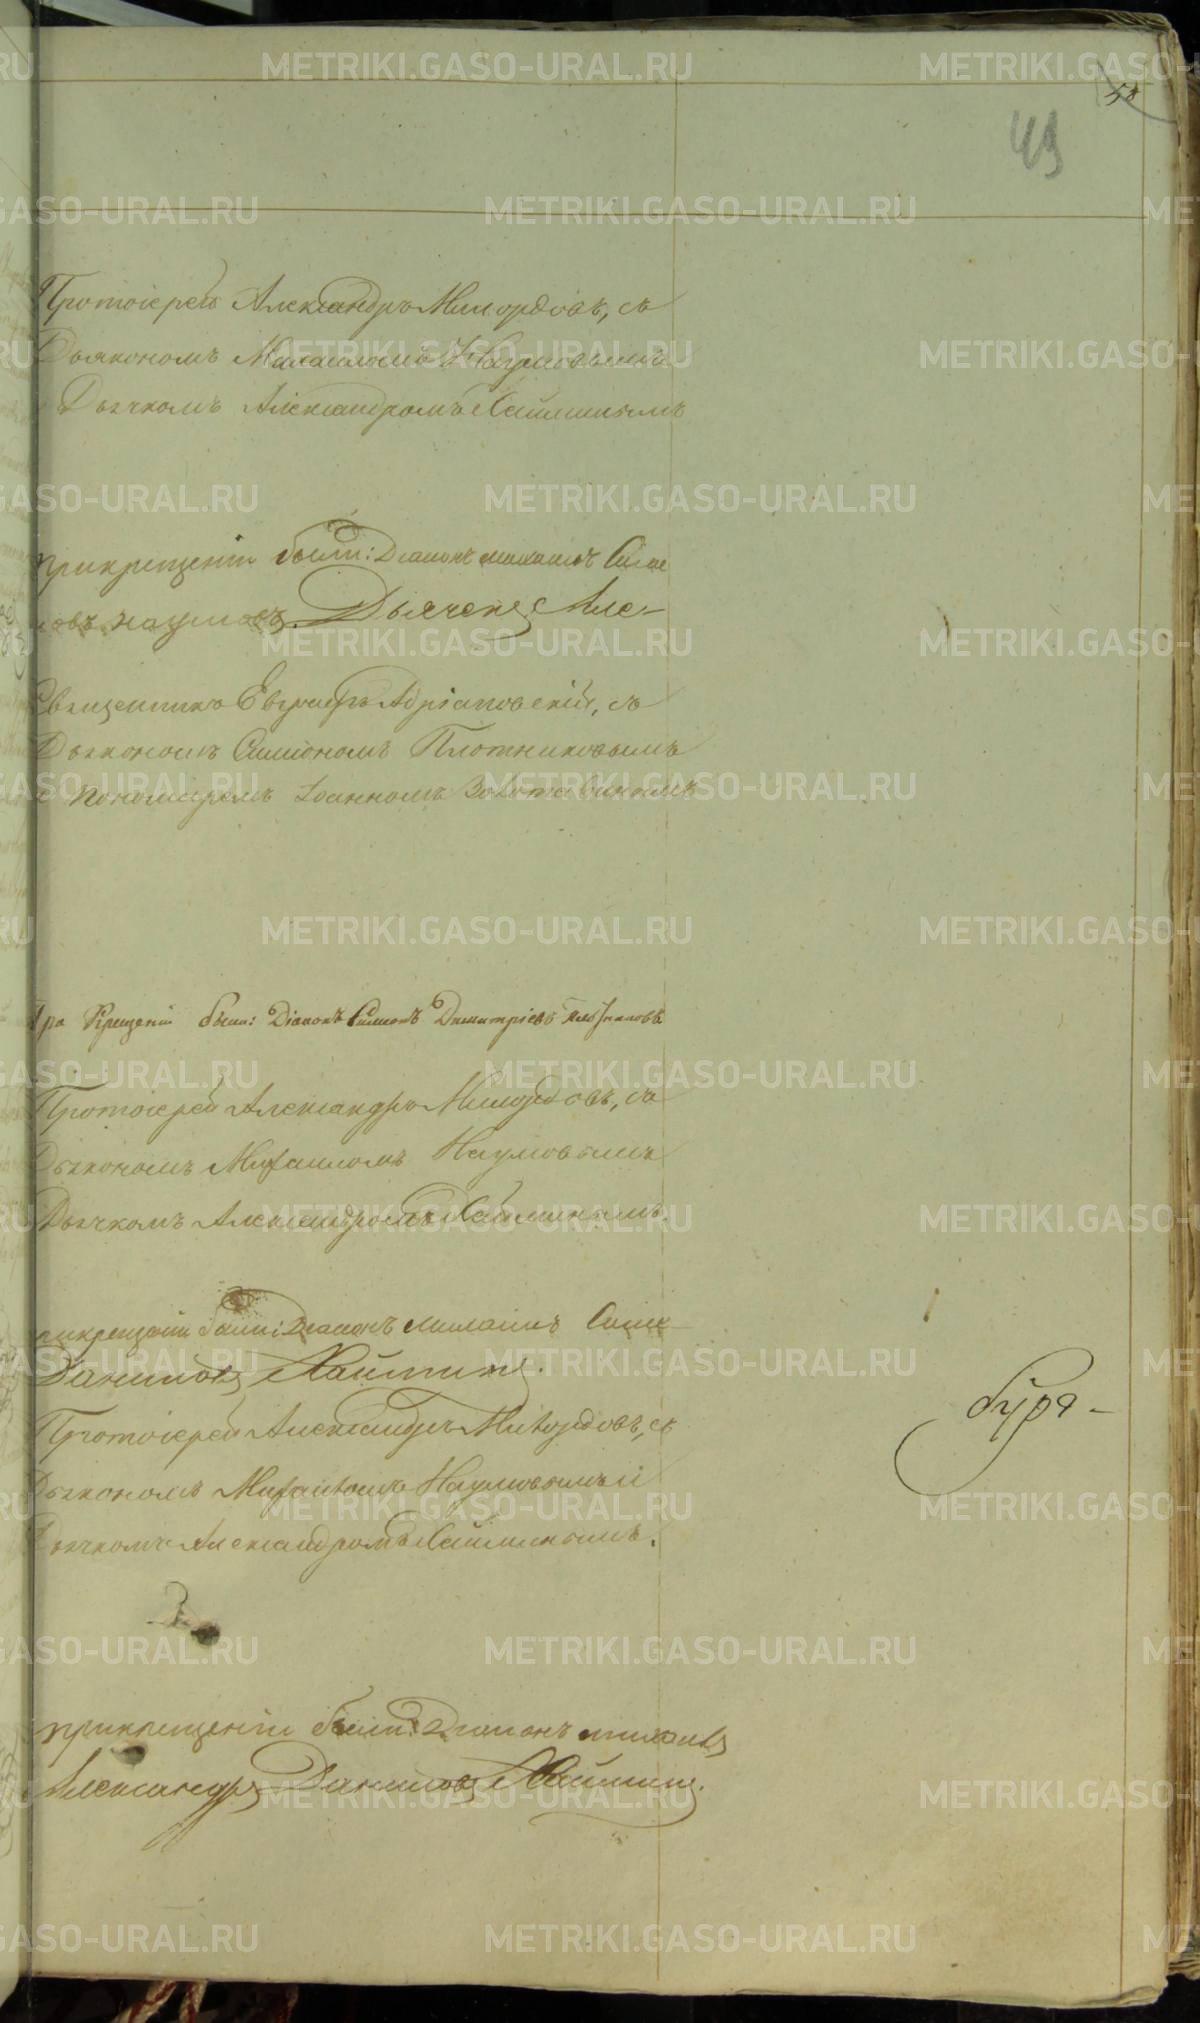 58
49
Протоіерей Александръ Милордовъ, съ
Дьякономъ Михаиломъ Наумовымъ
Дьячкомъ Александромъ Хайминымъ
прикрещеніи были: Діаконъ михаилъ Симе
новъ наумовъ. Дьячекъ Але-
Священникъ Евграфъ Адріановскій, съ
Дьякономъ Симіономъ Плотниковымъ
и Пономаремъ Іоанномъ Золотавинымъ
При Крещеніи были: Діаконъ Симеонъ Димитріевъ Плотниковъ
Протоіерей Александръ Милордовъ, съ
Дьякономъ Михаиломъ Наумовымъ
Дьячкомъ Александромъ Хайминымъ.
прикрещеніи были: Діаконъ михаилъ Симе
Даниловъ Хайминъ.
Протоіерей Александръ Милордовъ, съ
Дьякономъ Михаиломъ Наумовымъ и
Дьячкомъ Александромъ Хайминымъ.
бура-
прикрещеніи были: Діаконъ михаилъ
Александръ Даниловъ Хайминъ.
METRIKI.GASO-URAL.RU